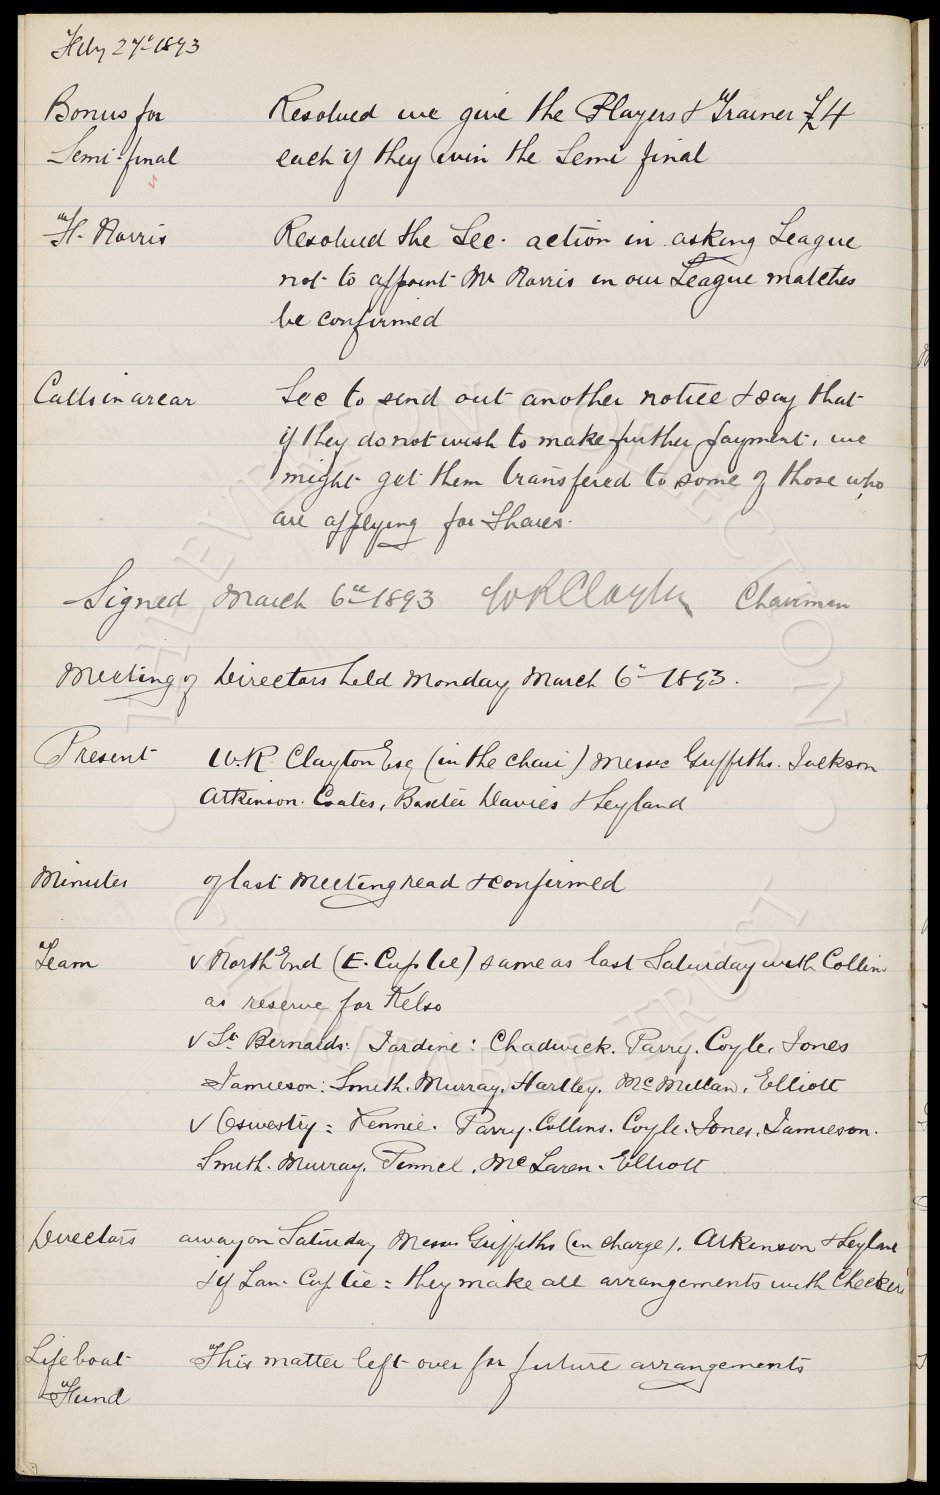 Feby 27th 1893
Bonus for Resolved we give the Players & Trainer £4
Semi-final each if they win the Semi final
H. Norris Resolved the Sec. action in asking League
not to appoint Mr Norris in our League matches
be confirmed
Calls in arear Sec to send out another notice & say that
if they do not wish to make further payment, we
might get them transfered to some of those who
are applying for Shares.
Signed March 6th 1893 W R Clayton Chairman
Meeting of Directors held Monday March 6th 1893.
Present W.R. Clayton Esq (in the chair) Messrs Griffiths. Jackson
Atkinson. Coates, Baxter Davies & Leyland
Minutes of last Meeting read & confirmed
Team v North End (E. Cup tie) same as last Saturday with Collins
as reserve for Kelso
v St Bernards: Jardine: Chadwick. Parry. Coyle. Jones
Jamieson: Smith. Murray. Hartley. McMillan. Elliott
v Oswestry: Rennie. Parry. Collins. Coyle. Jones. Jamieson.
Smith. Murray. Pinnel. McLaren. Elliott
Directors away on Saturday Messrs Griffiths (in charge). Atkinson & Leyland
if Lan. Cup tie: they make all arrangements with Checkers
Lifeboat This matter left over for future arrangements
Fund
THE EVERTON COLLECTION
CHARITABLE TRUST